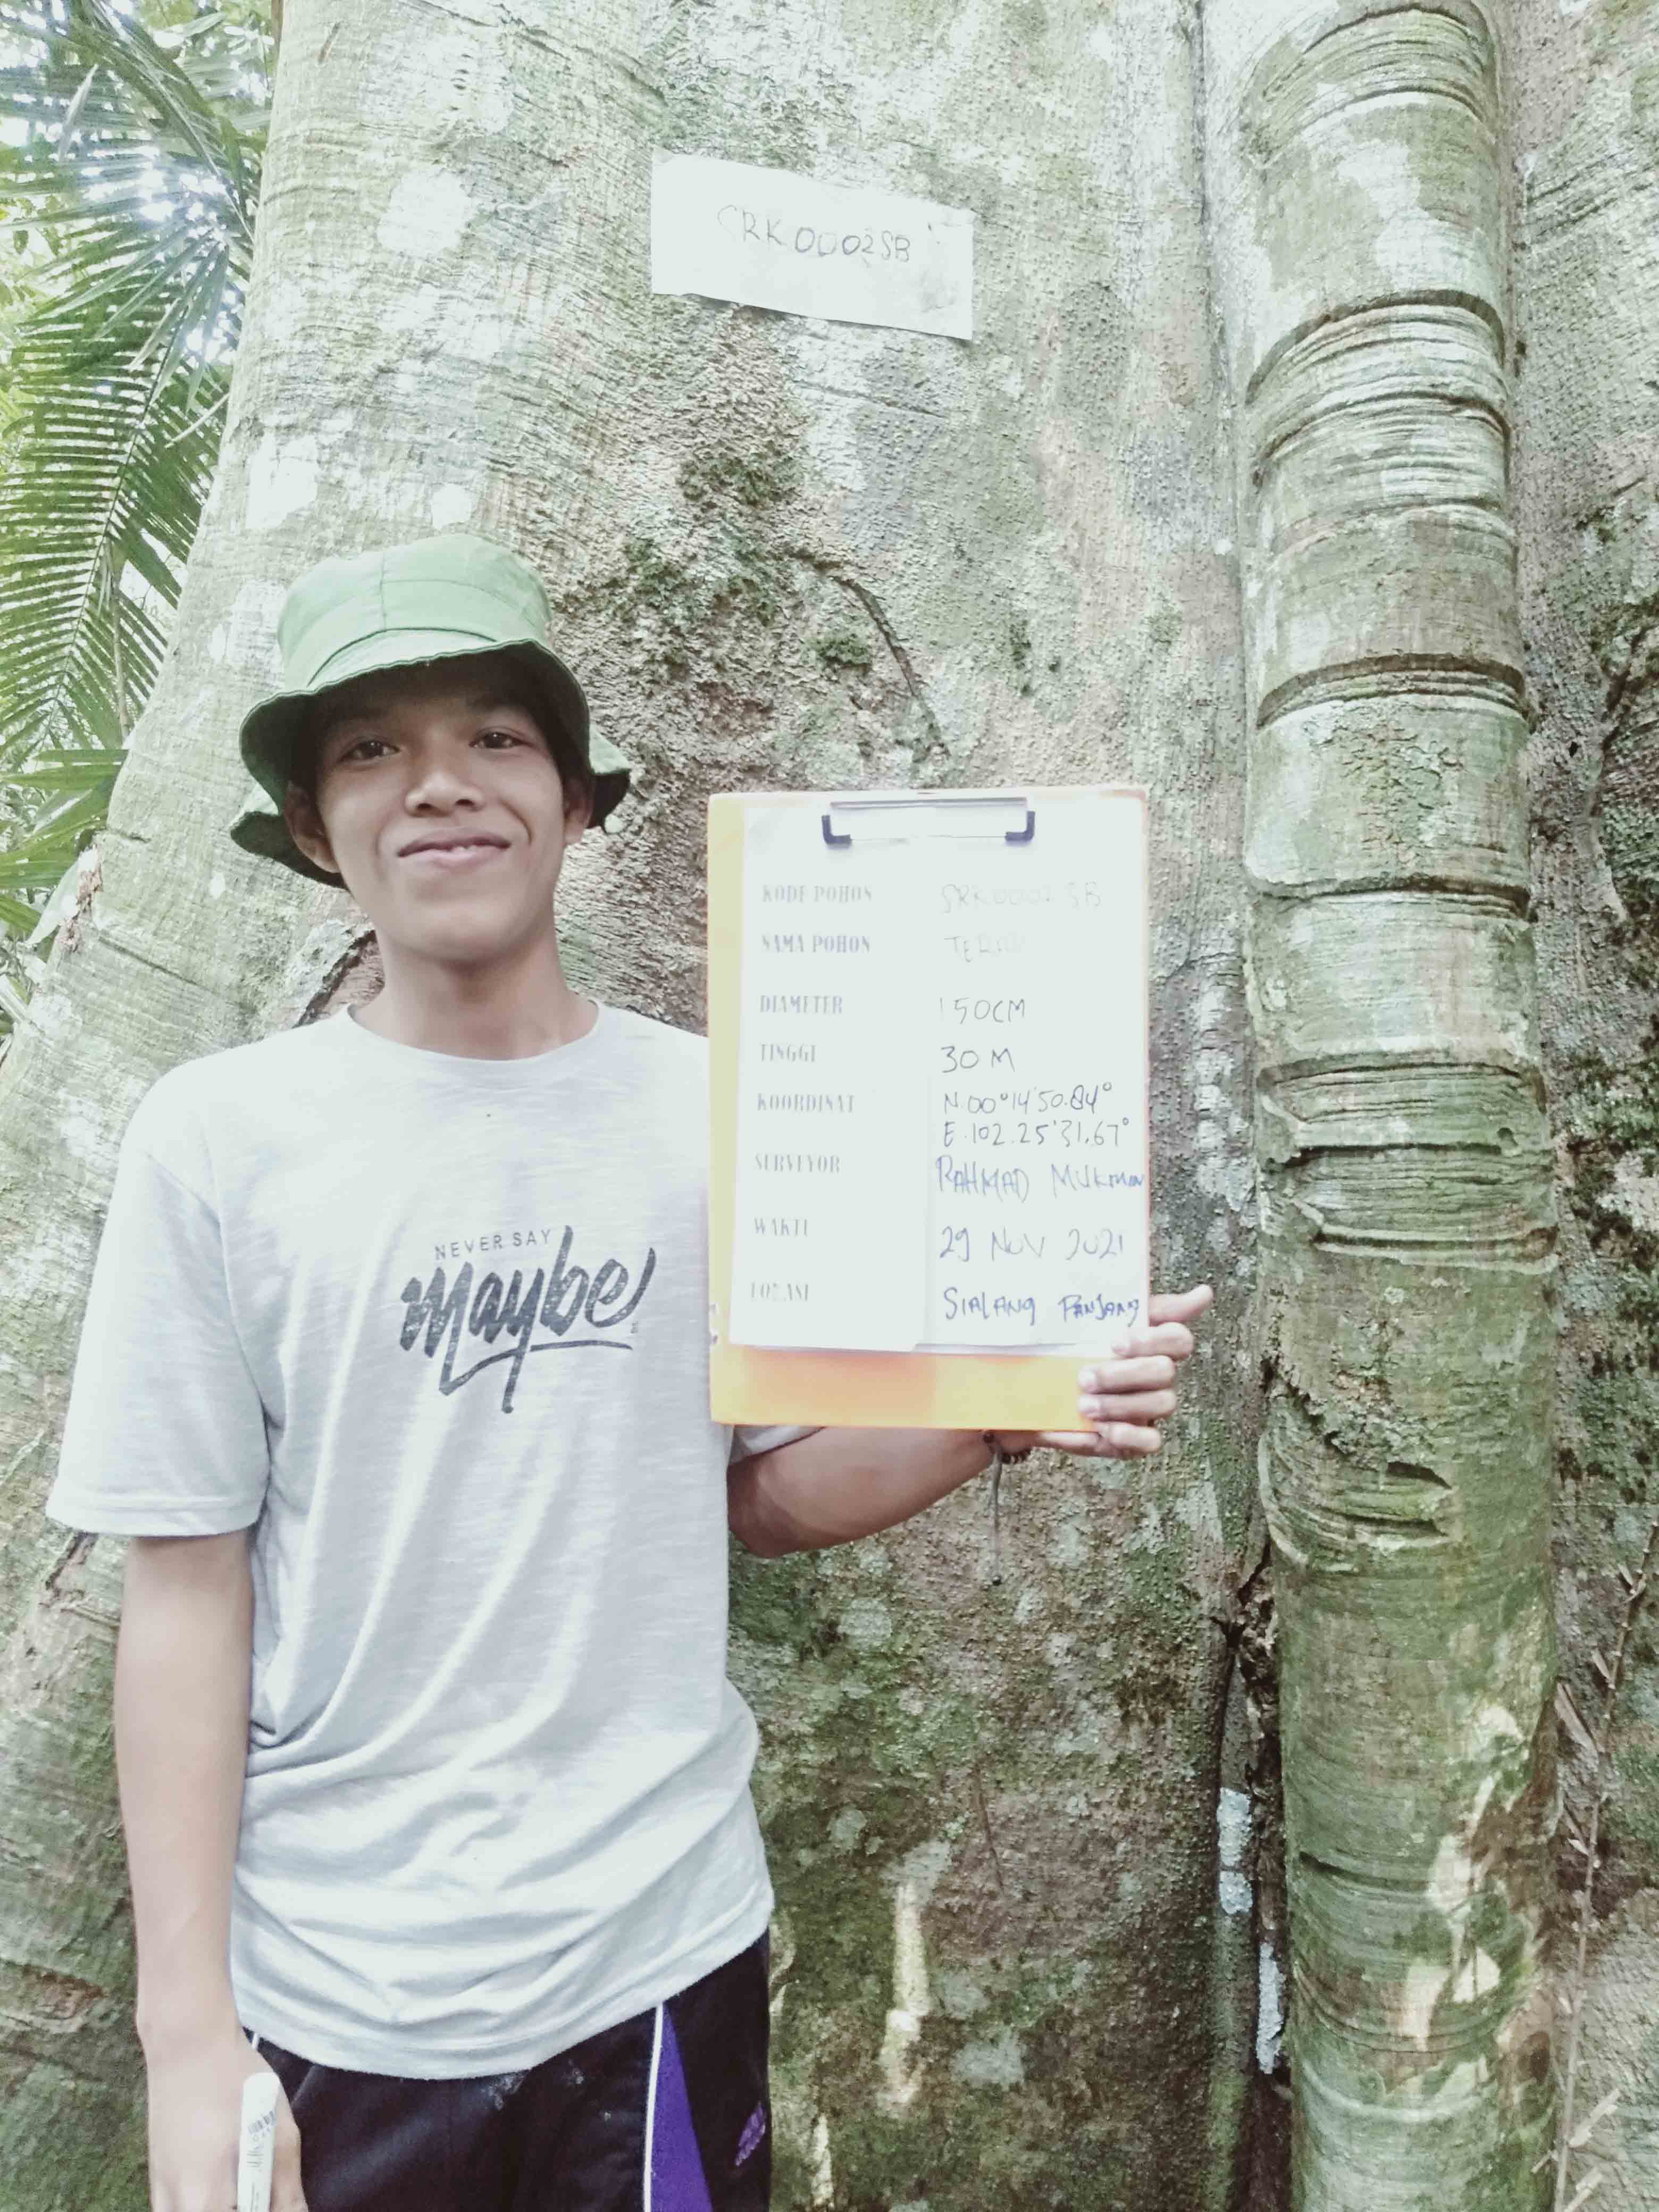 SRK0002SB
KODE POHON SRK0002 SB
NAMA POHON
DIAMETER 150CM
TINGGI 30 M
KOORDINAT N.00°14'50.84°
E.102.25'31.67°
SURVEYOR RAHMAD MUKMIN
WAKTU 29 NOV 2021
LOKASI SIALANG PANJANG
NEVER SAY
maybe